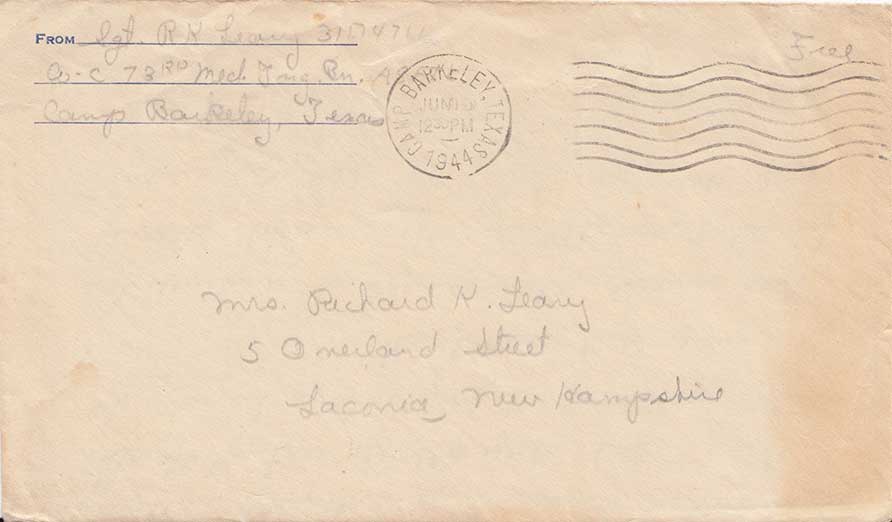 FROM Sgt. R K Leary
Free
Co-C 73RD Med. Tng. Bn.
Camp Barkeley, Texas
CAMP BARKELEY, TEXAS
JUN
12 30 PM
1944
Mrs. Richard K. Leary
5 Overland Street
Laconia, New Hampshire